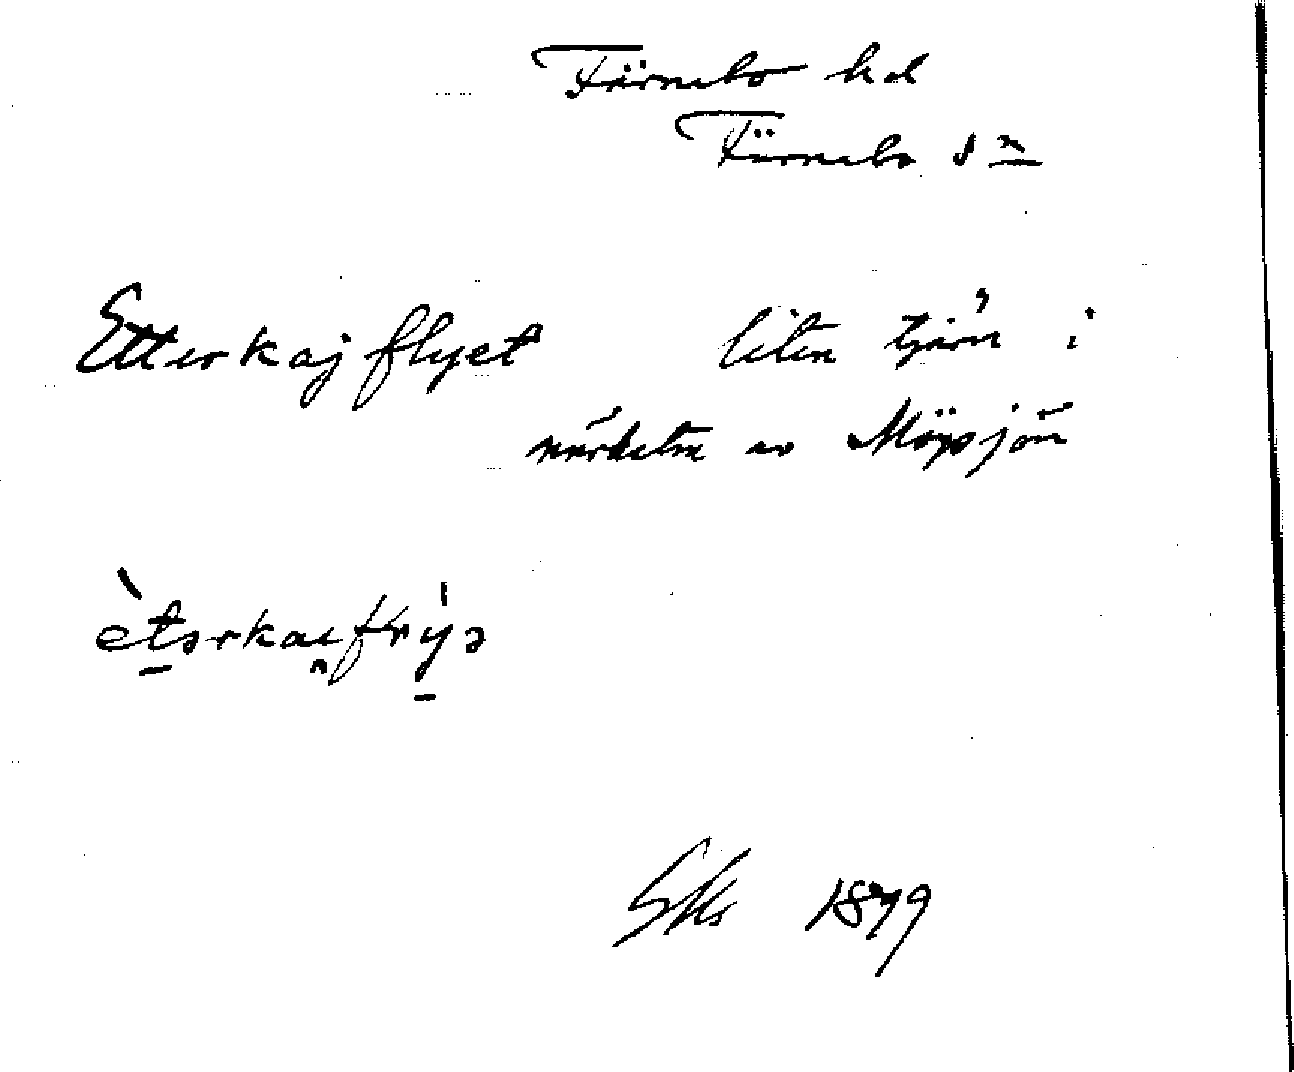 Färnebo hd
Färnebo sn
Etterkajflyet liten tjärn i
närheten av Möpsjön
ètərkai̯frýə
Sks 1879